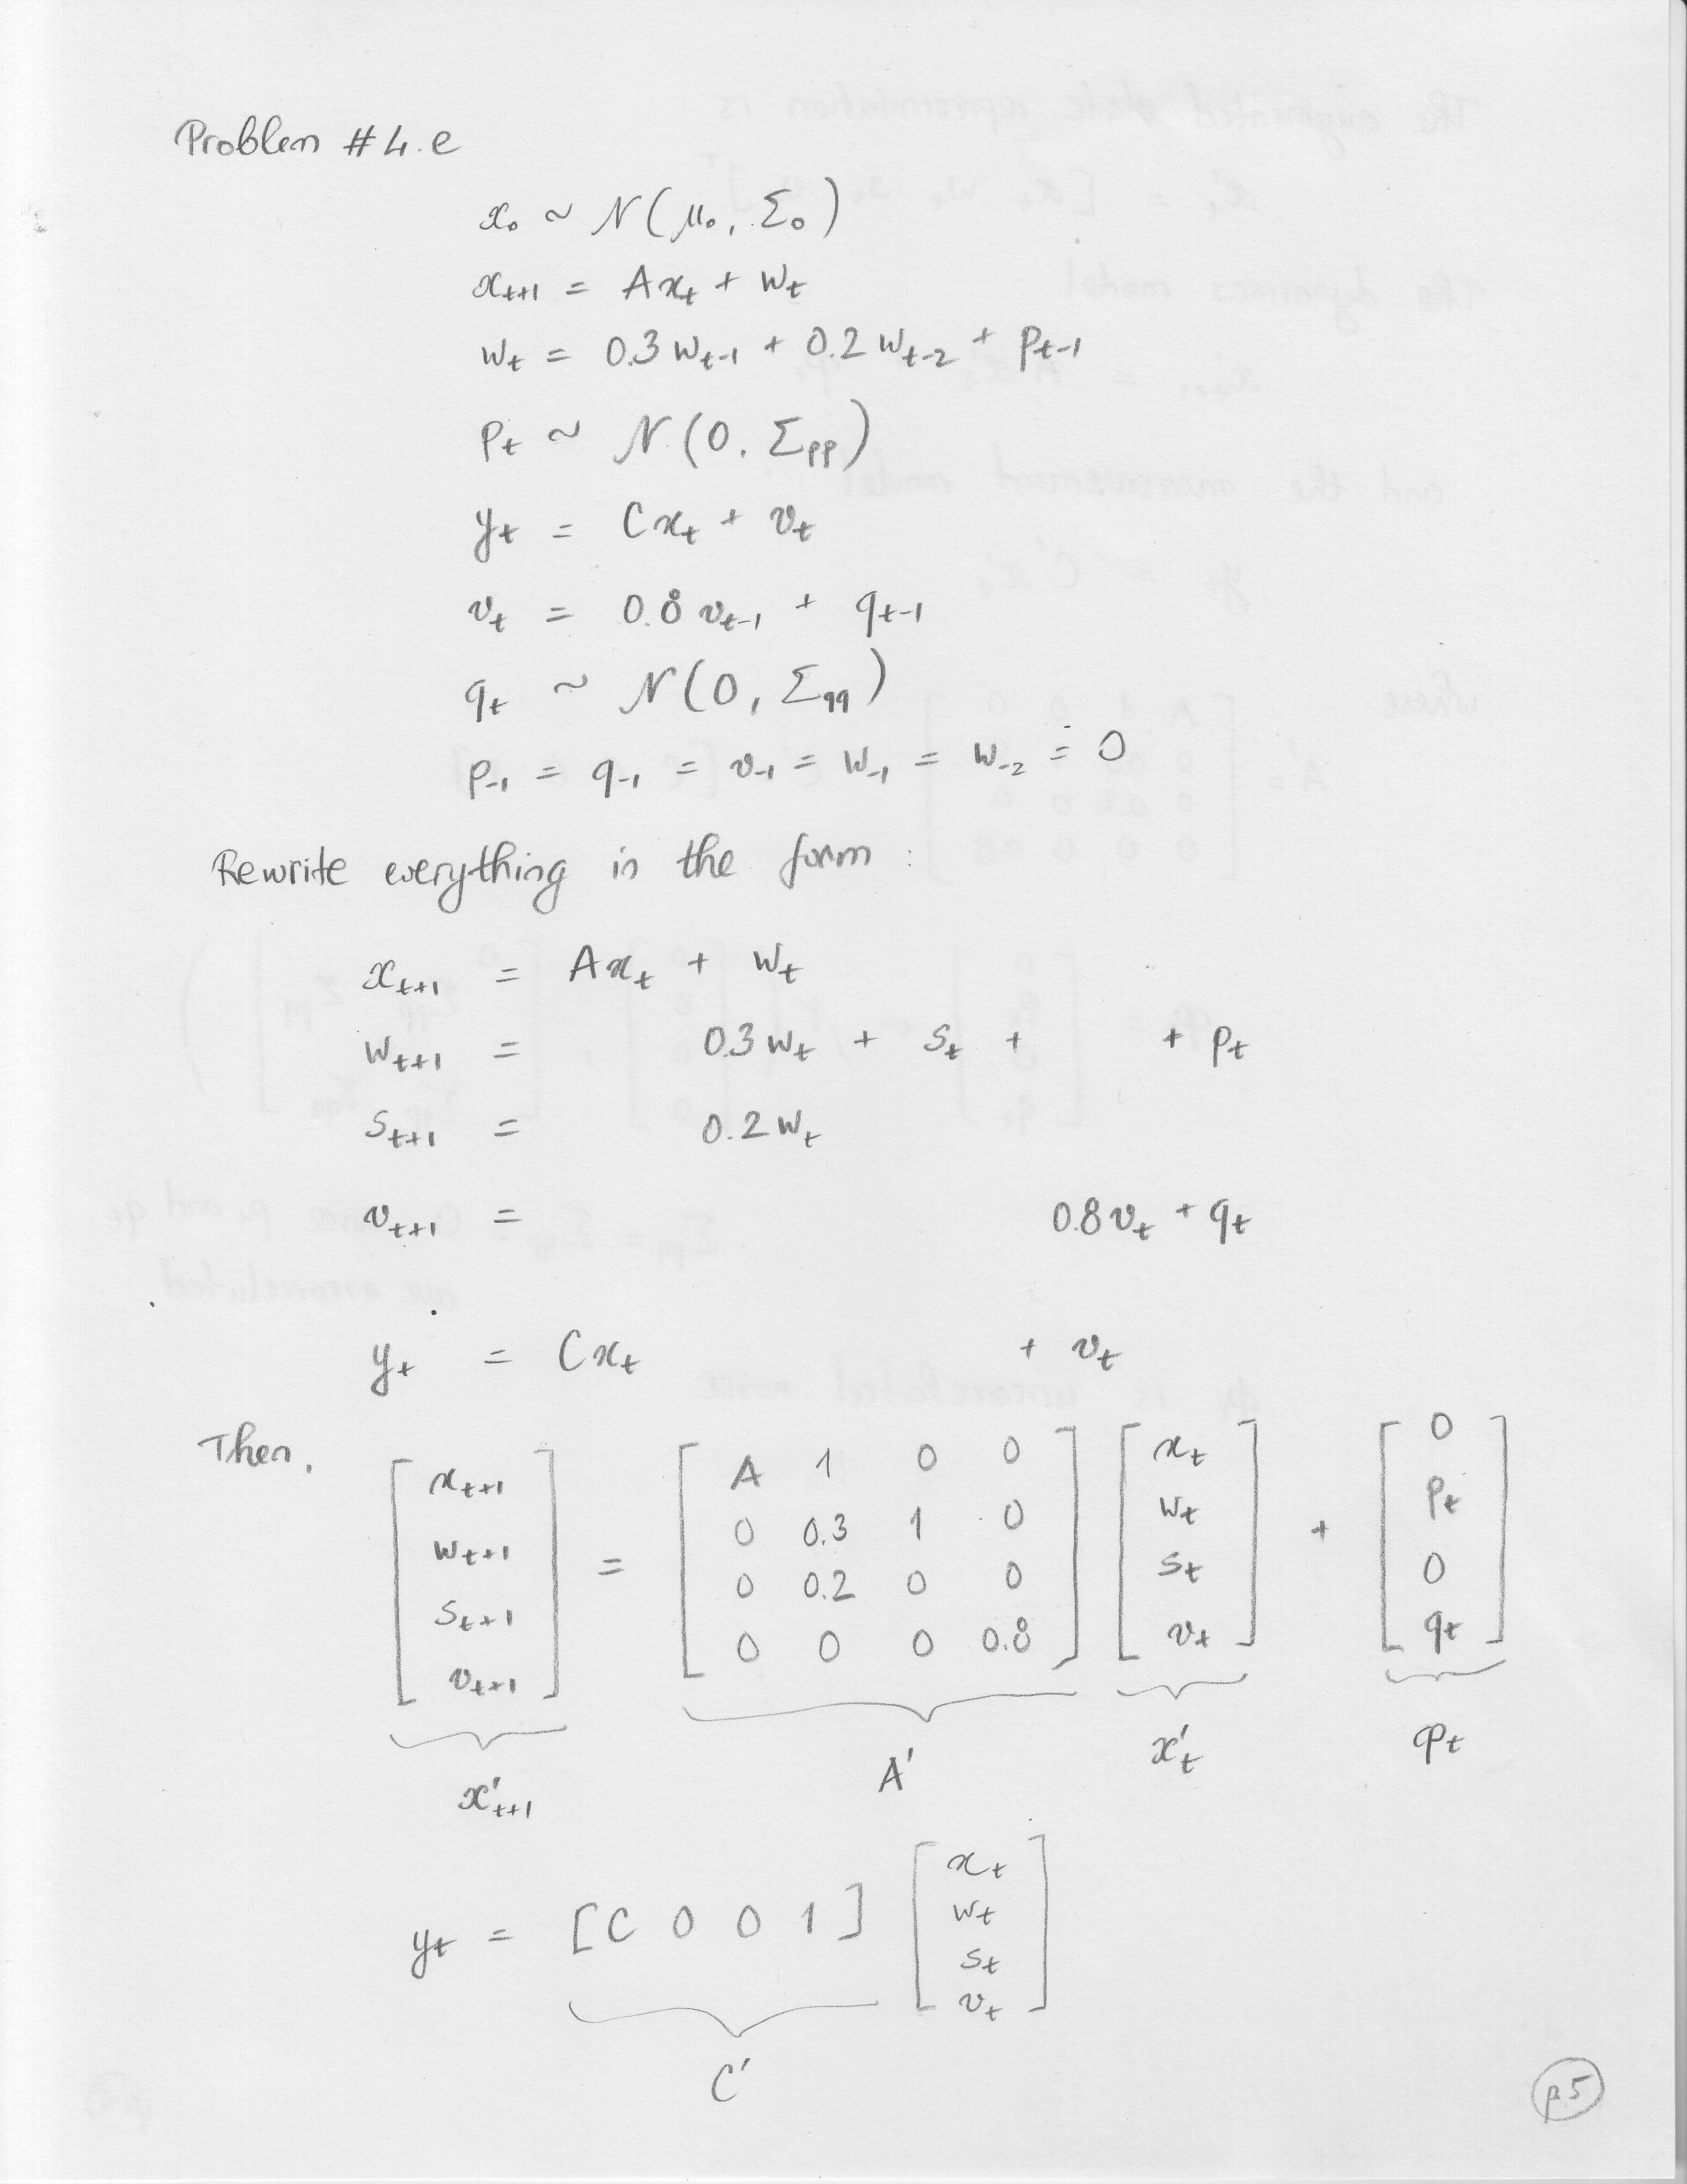 Problem #4.e
x₀ ~ N(μ₀, Σ₀)
xₜ₊₁ = Axₜ + wₜ
wₜ = 0.3wₜ₋₁ + 0.2wₜ₋₂ + pₜ₋₁
pₜ ~ N(0, Σpp)
yₜ = Cxₜ + vₜ
vₜ = 0.8vₜ₋₁ + qₜ₋₁
qₜ ~ N(0, Σqq)
p₋₁ = q₋₁ = v₋₁ = w₋₁ = w₋₂ = 0
Rewrite everything in the form :
xₜ₊₁ = Axₜ + wₜ
wₜ₊₁ = 0.3wₜ + sₜ + + pₜ
sₜ₊₁ = 0.2wₜ
vₜ₊₁ = 0.8vₜ + qₜ
yₜ = Cxₜ + vₜ
Then,
[xₜ₊₁ wₜ₊₁ sₜ₊₁ vₜ₊₁] = [A 1 0 0
0 0.3 1 0
0 0.2 0 0
0 0 0 0.8] [xₜ wₜ sₜ vₜ] + [0 pₜ 0 qₜ]
x'ₜ₊₁ A' x'ₜ φₜ
yₜ = [C 0 0 1] [xₜ wₜ sₜ vₜ]
C'
p.5